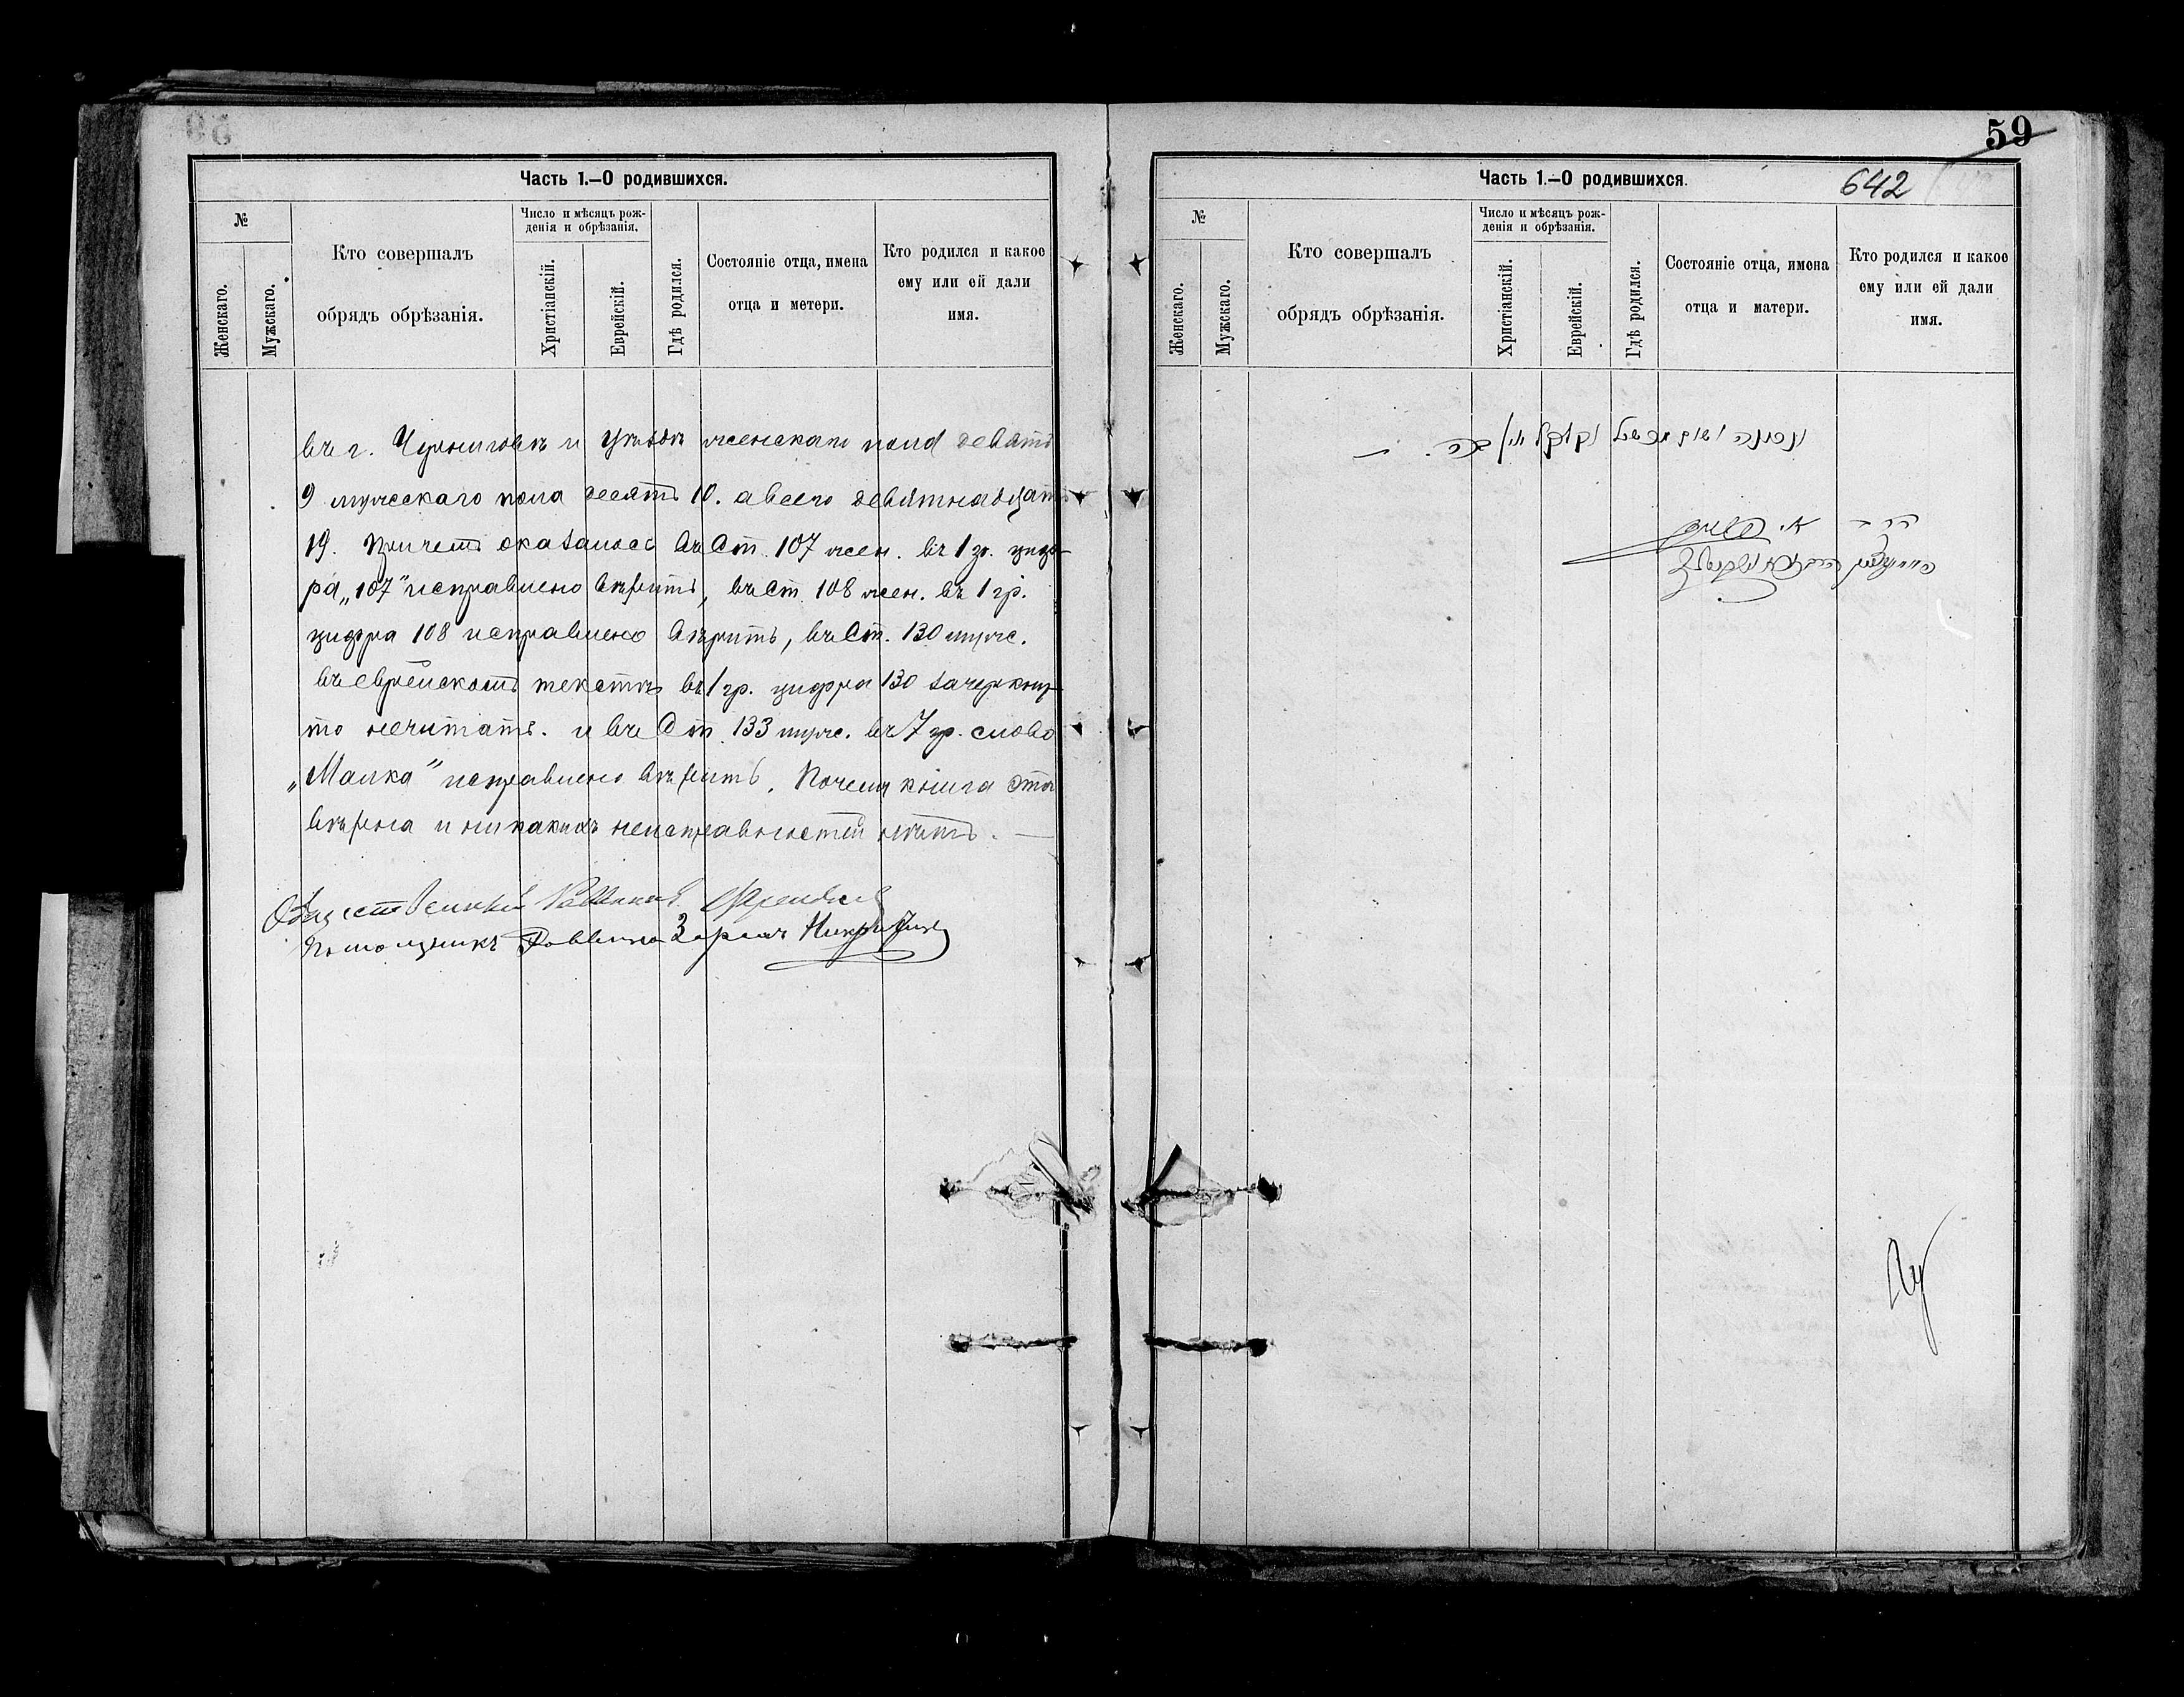 Часть 1.—О родившихся.
№
Женскаго.
Мужскаго.
Кто совершалъ
обрядъ обрѣзанія.
Число и мѣсяцъ рож-
денія и обрѣзанія.
Христіанскій.
Еврейскій.
Гдѣ родился.
Состояніе отца, имена
отца и метери.
Кто родился и какое
ему или ей дали
имя.
въ г. Черниговѣ и уѣздѣ женскаго пола девять
9 мужескаго пола десять 10. а всего девятнадцать
19. Причемъ оказалось въ Ст. 107 жен. въ 1 гр. циф-
ра „107" исправлено вѣрить, въ Ст. 108 жен. въ 1 гр.
цифра 108 исправлено вѣрить, въ Ст. 130 мужс.
въ еврейскомъ текстѣ въ 1 гр. цифра 130 зачеркну-
то нечитать. и въ Ст. 133 мужс. въ 7 гр. слово
„Малка" исправлено вѣрить. Почему книга эта
вѣрна и никакихъ неисправностей нѣтъ. —
Общественный Раввинъ
Помощникъ Раввина
59
Часть 1.—О родившихся.
642
№
Женскаго.
Мужскаго.
Кто совершалъ
обрядъ обрѣзанія.
Число и мѣсяцъ рож-
денія и обрѣзанія.
Христіанскій.
Еврейскій.
Гдѣ родился.
Состояніе отца, имена
отца и матери.
Кто родился и какое
ему или ей дали
имя.